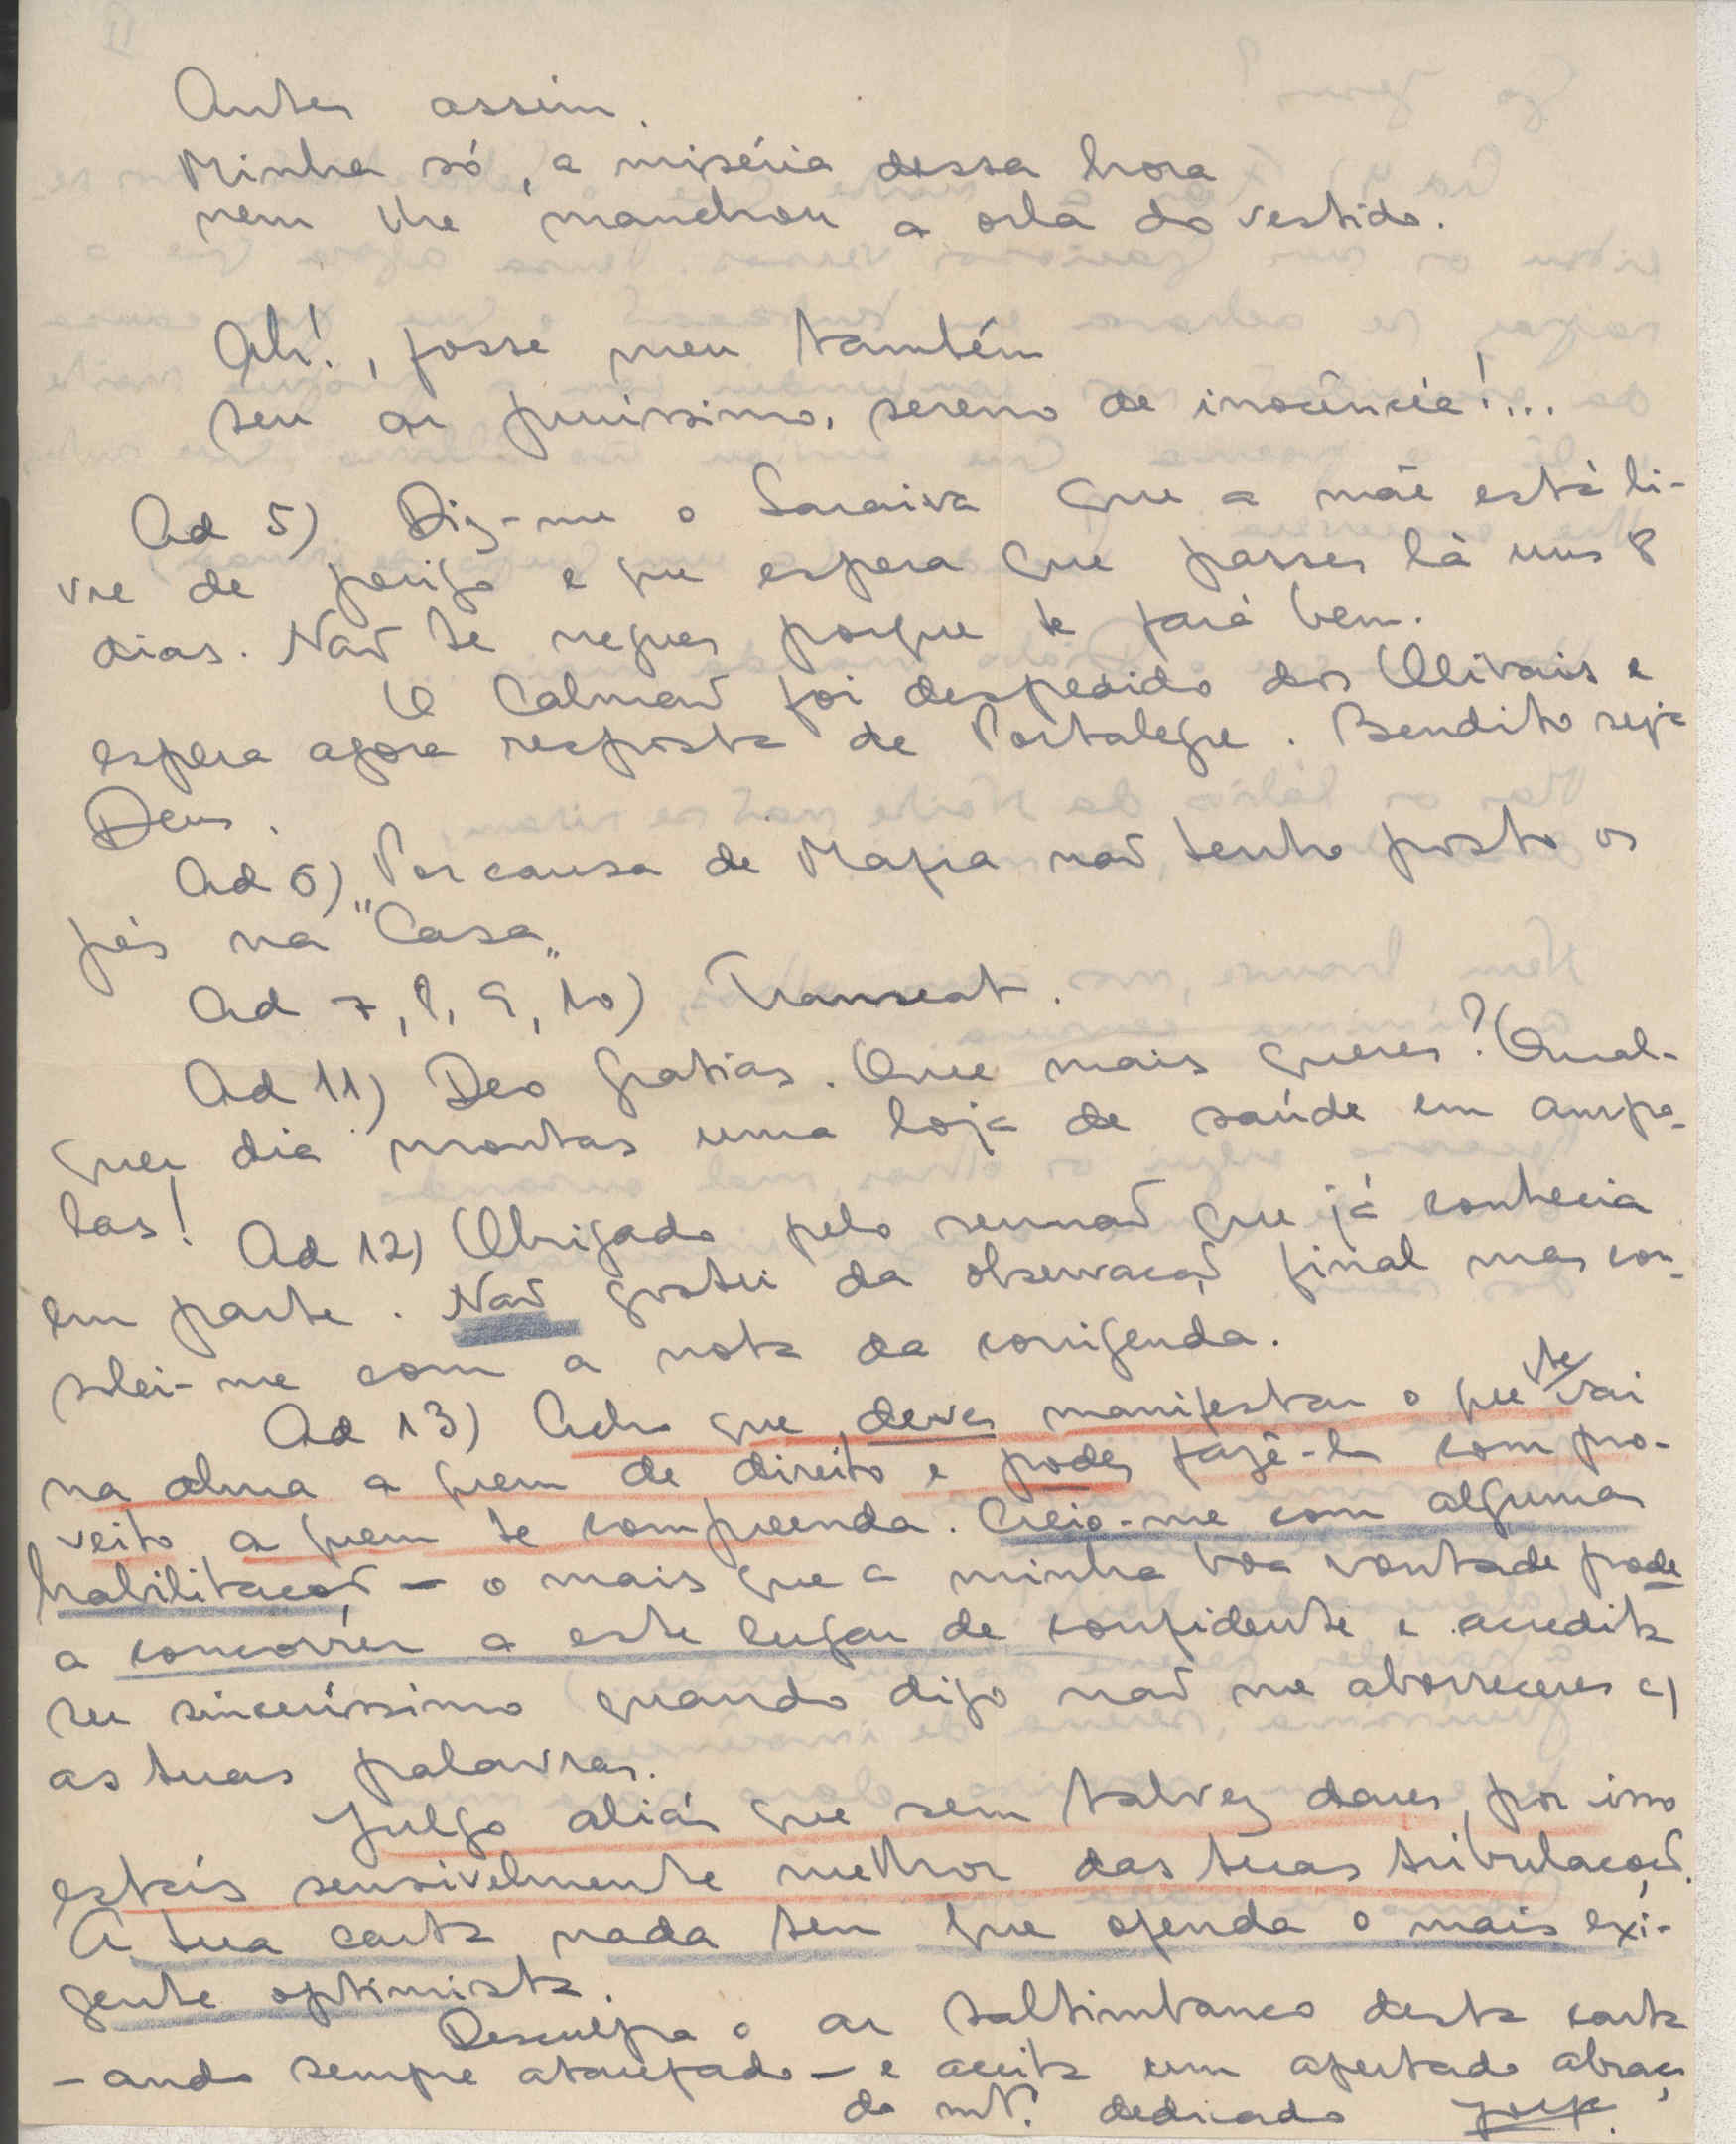 Antes assim.
Minha só, a miséria dessa hora
nem lhe manchou a orla do vestido.
Ah!, fosse meu também
seu ar puríssimo, sereno de inocência!...
Ad 5) Diz-me o Saraiva que a mãe está li-
vre de perigo e que espera que passes lá uns 8
dias. Não te negues porque te fará bem.
O Calmão foi despedido dos Olivais e
espera agora resposta de Portalegre. Bendito seja
Deus.
Ad 6) Por causa de Mafra não tenho posto os
pés na "Casa"
Ad 7, 8, 9, 10) Transeat.
Ad 11) Deo gratias. Que mais queres? Qual-
quer dia montas uma loja de saúde em ampo-
las!
Ad 12) Obrigado pelo sermão que já conhecia
em parte. Não gostei da observação final mas con-
solei-me com a nota da corrigenda.
Ad 13) Acho que deves manifestar o que te vai
na alma a quem de direito e podes fazê-lo com pro-
veito a quem te compreenda. Creio-me com alguma
habilitação — o mais que a minha boa vontade pode
a concorrer a este lugar de confidente e acredita
ser sinceríssimo quando digo não me aborreceres c/
as tuas palavras.
Julgo aliás que sem talvez dares por isso
estás sensivelmente melhor das tuas tribulações.
A tua carta nada tem que ofenda o mais exi-
gente optimista.
Desculpa o ar saltimbanco desta carta
— ando sempre atarefado — e aceita um apertado abraço
do mt. dedicado